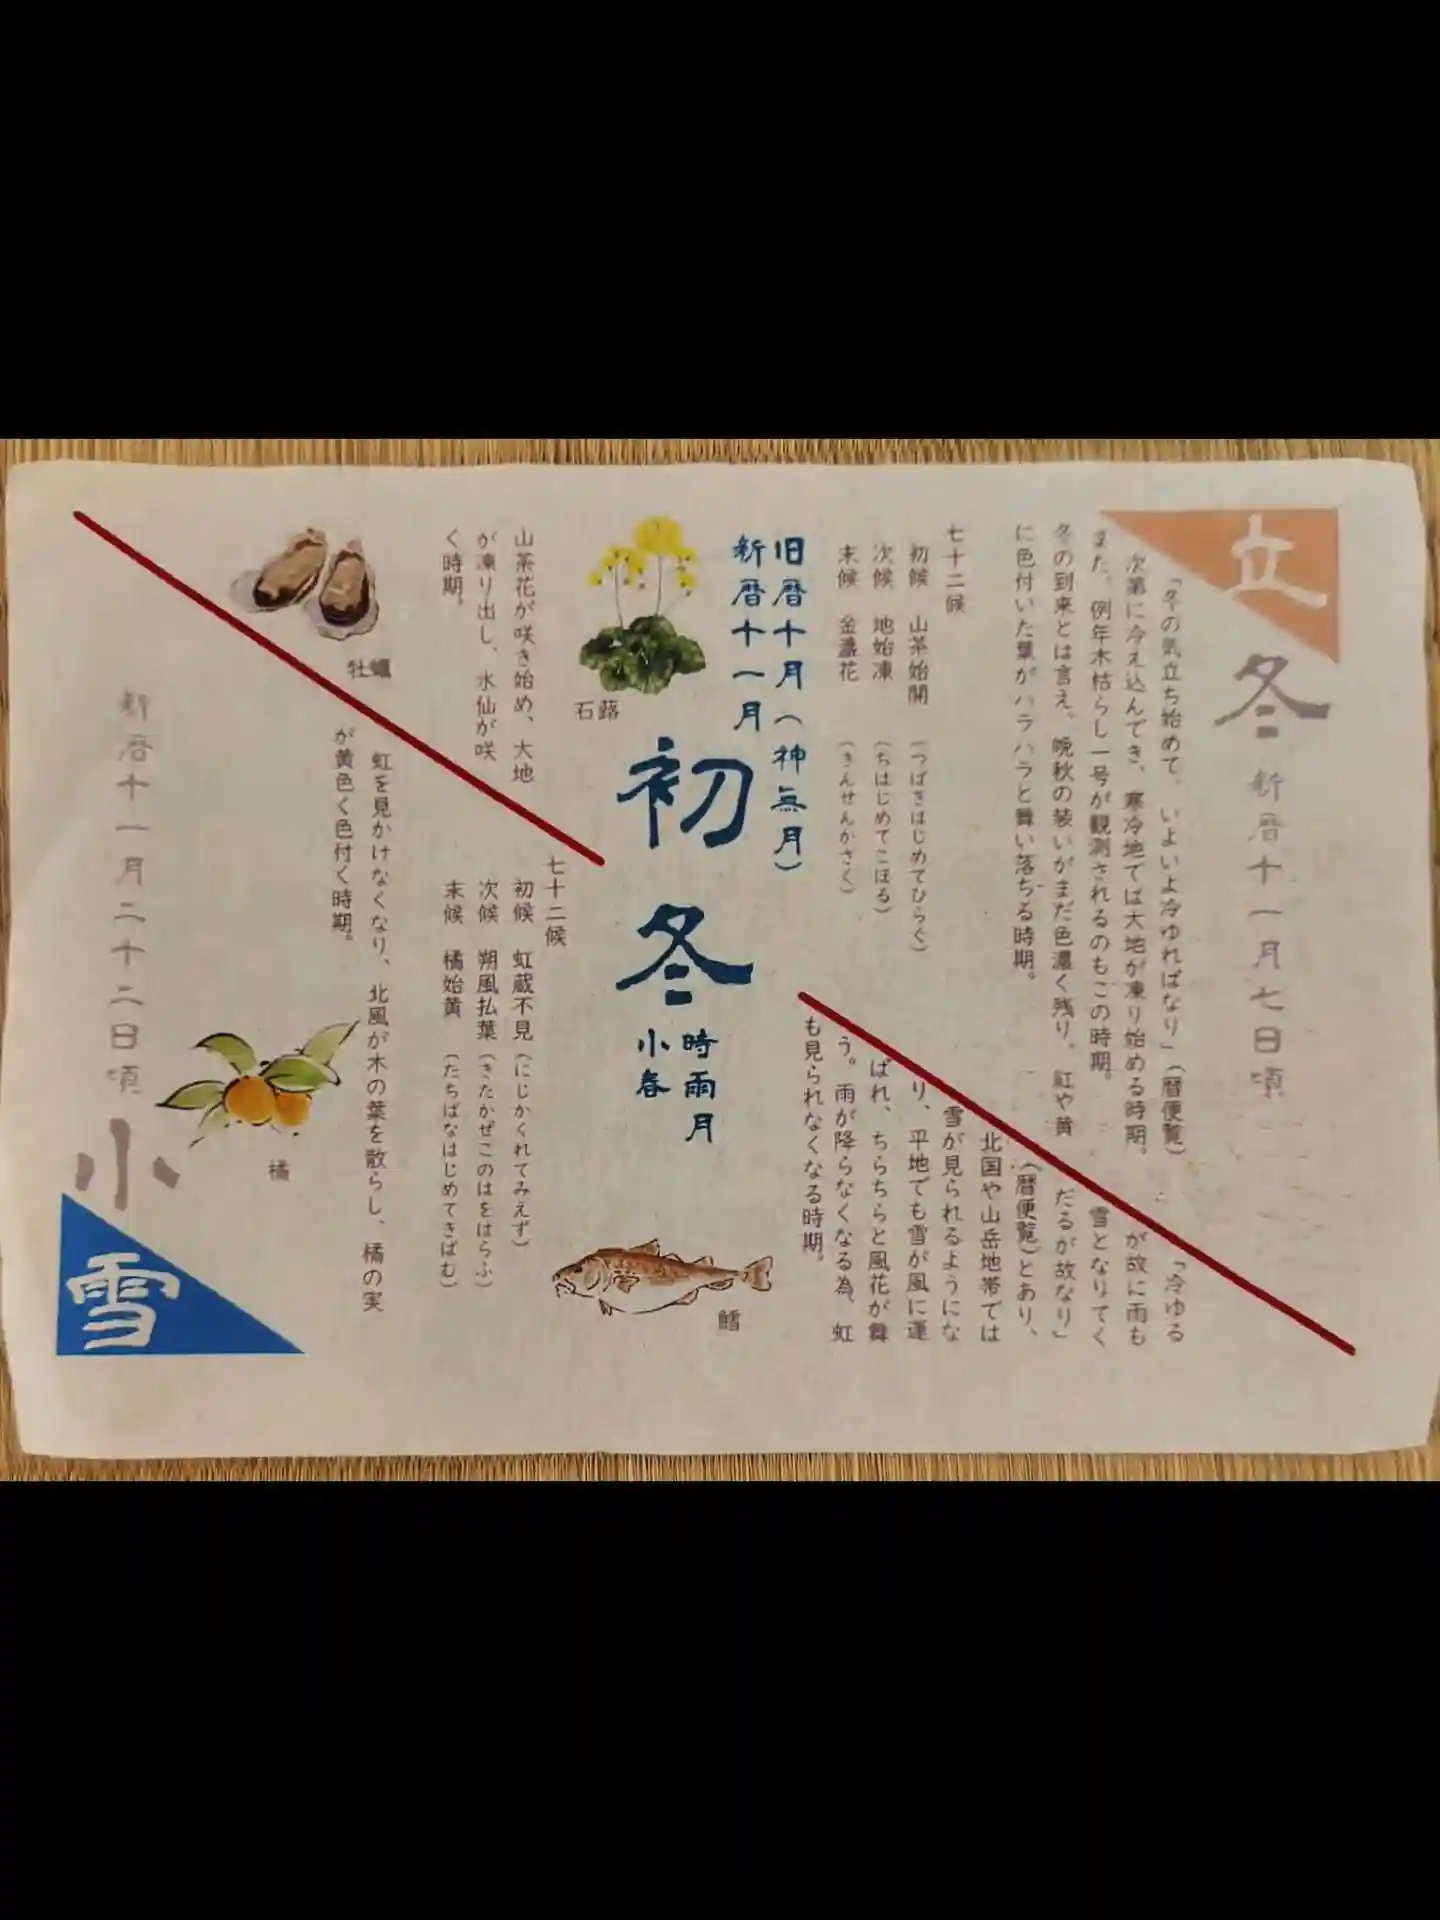 立冬
新暦十一月七日頃
「冬の気立ち始めて、いよいよ冷ゆればなり」(暦便覧)
次第に冷え込んでき、寒冷地では大地が凍り始める時期。
また、例年木枯らし一号が観測されるのもこの時期。
冬の到来とは言え、晩秋の装いがまだ色濃く残り、紅や黄
に色付いた葉がハラハラと舞い落ちる時期。
七十二候
初候 山茶始開 (つばきはじめてひらく)
次候 地始凍 (ちはじめてこほる)
末候 金盞花 (きんせんかさく)
旧暦十月(神無月)
新暦十一月
初冬
時雨月
小春
石蕗
山茶花が咲き始め、大地
が凍り出し、水仙が咲
く時期。
牡蠣
「冷ゆる
が故に雨も
雪となりてく
だるが故なり」
(暦便覧)とあり、
北国や山岳地帯では
雪が見られるようにな
り、平地でも雪が風に運
ばれ、ちらちらと風花が舞
う。雨が降らなくなる為、虹
も見られなくなる時期。
鱈
七十二候
初候 虹蔵不見 (にじかくれてみえず)
次候 朔風払葉 (きたかぜこのはをはらふ)
末候 橘始黄 (たちばなはじめてきばむ)
虹を見かけなくなり、北風が木の葉を散らし、橘の実
が黄色く色付く時期。
橘
新暦十一月二十二日頃
小雪